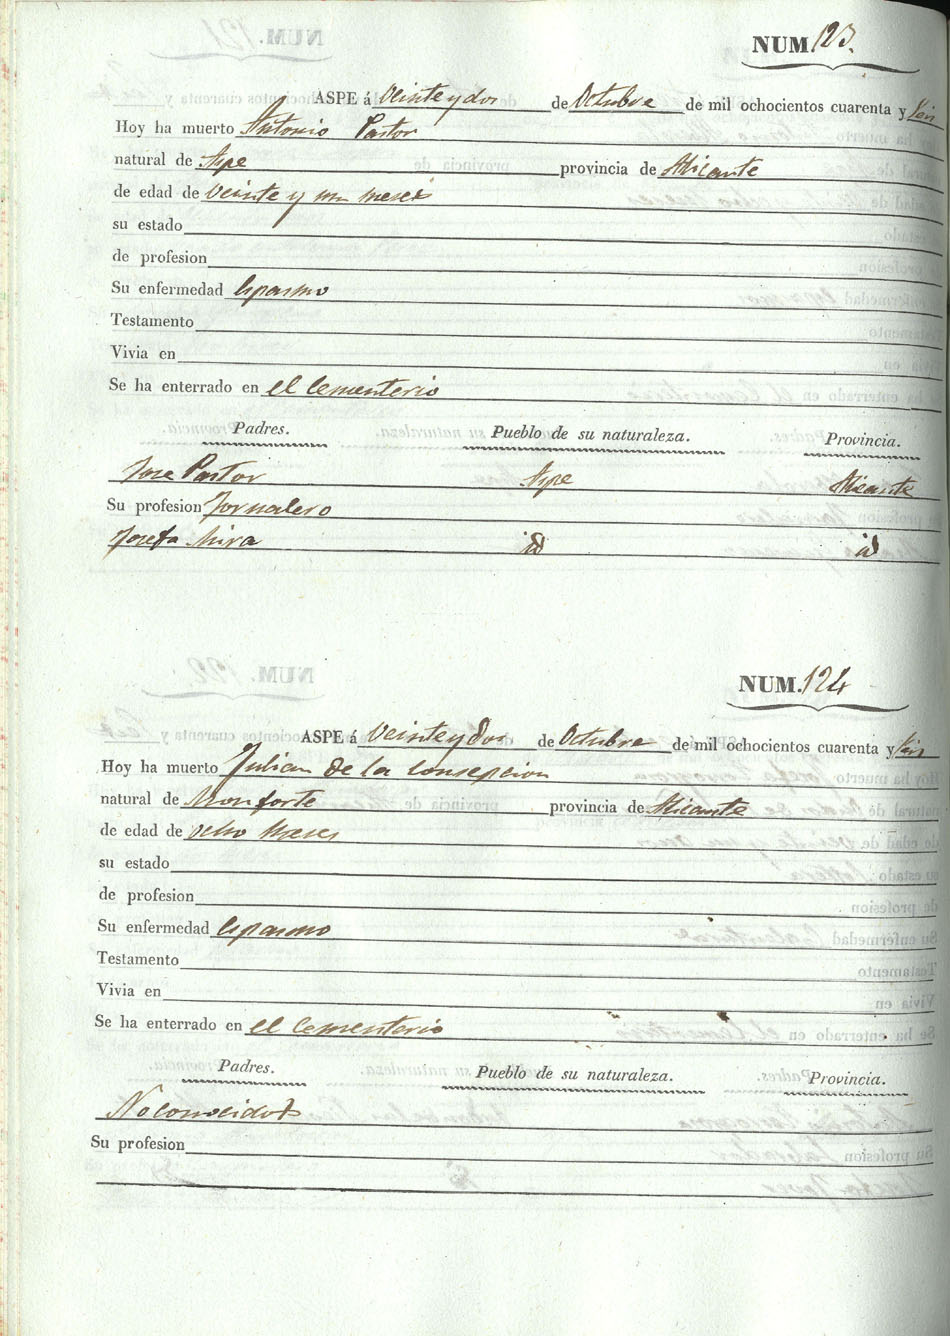 NUM. 123.
ASPE á Veinte y dos de Octubre de mil ochocientos cuarenta y Seis
Hoy ha muerto Antonio Pastor
natural de Aspe provincia de Alicante
de edad de veinte y un meses
su estado
de profesion
Su enfermedad Espasmo
Testamento
Vivia en
Se ha enterrado en el Cementerio
Padres. Pueblo de su naturaleza. Provincia.
Jose Pastor Aspe Alicante
Su profesion Jornalero
Josefa Mira id id
NUM. 124
ASPE á Veinte y dos de Octubre de mil ochocientos cuarenta y Seis
Hoy ha muerto Julian de la Consepcion
natural de Monforte provincia de Alicante
de edad de Ocho Meses
su estado
de profesion
Su enfermedad Espasmo
Testamento
Vivia en
Se ha enterrado en el Cementerio
Padres. Pueblo de su naturaleza. Provincia.
No conocidos
Su profesion